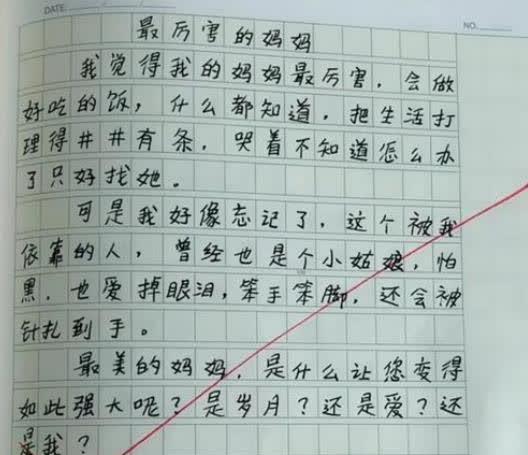 DATE
NO.
最厉害的妈妈
我觉得我的妈妈最厉害，会做
好吃的饭，什么都知道，把生活打
理得井井有条，哭着不知道怎么办
了只好找她。
可是我好像忘记了，这个被我
依靠的人，曾经也是个小姑娘，怕
黑，也爱掉眼泪，笨手笨脚，还会被
针扎到手。
最美的妈妈，是什么让您变得
如此强大呢？是岁月？还是爱？还
是我？